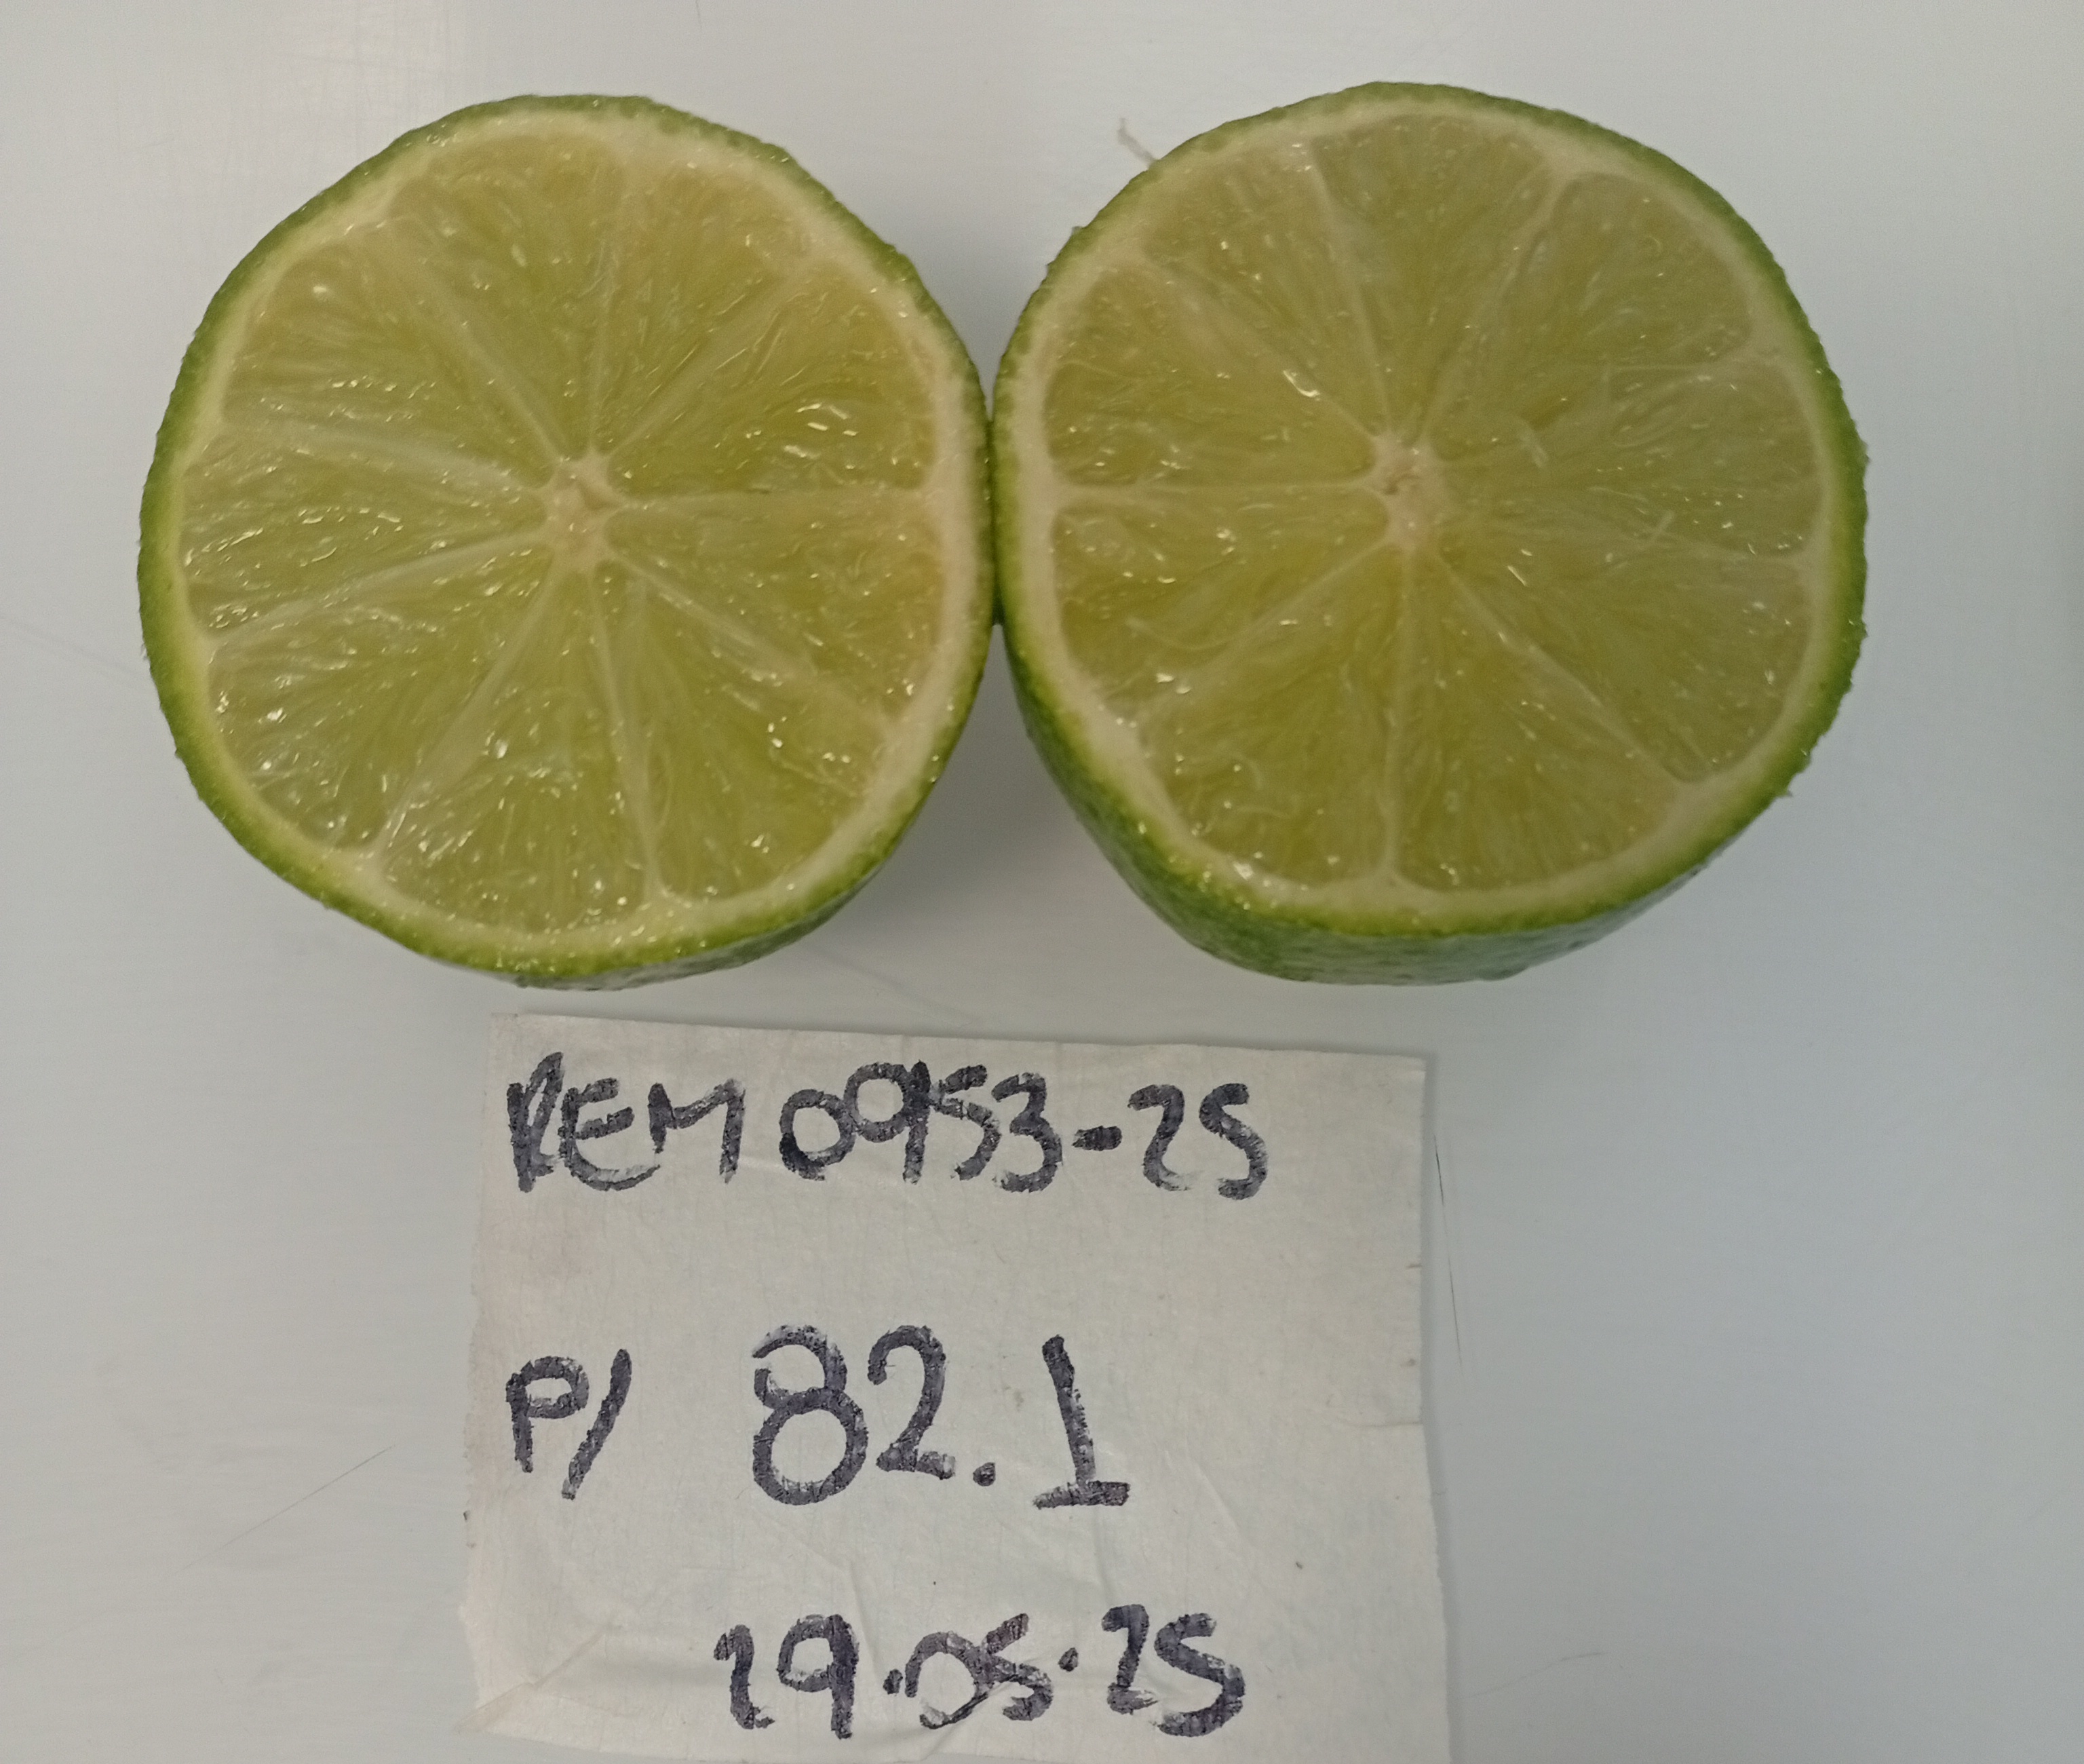 REM 0953-25
P/ 82.1
29.05.25